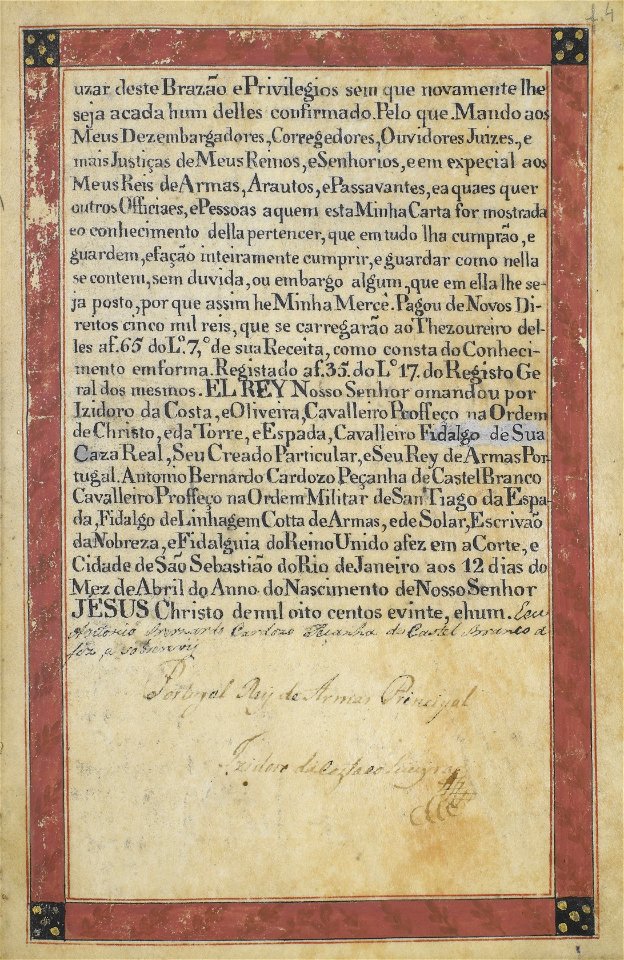 f. 4
uzar deste Brazão e Privilegios sem que novamente lhe
seja acada hum delles confirmado. Pelo que. Mando aos
Meus Dezembargadores, Corregedores, Ouvidores Juizes., e
mais Justiças de Meus Reinos, e Senhorios, e em expecial aos
Meus Reis de Armas, Arautos, e Passavantes, ea quaes quer
outros Officiaes, e Pessoas aquem esta Minha Carta for mostrada
eo conhecimento della pertencer, que em tudo lha cumprão, e
guardem, efação inteiramente cumprir, e guardar como nella
se contem, sem duvida, ou embargo algum, que em ella lhe se-
ja posto, por que assim he Minha Mercê. Pagou de Novos Di-
reitos cinco mil reis, que se carregarão ao Thezoureiro del-
les a f. 65 do L.º 7,º de sua Receita, como consta do Conheci-
mento em forma. Registado a f. 35. do L.º 17. do Registo Ge
ral dos mesmos. EL REY Nosso Senhor omandou por
Izidoro da Costa, e Oliveira, Cavalleiro Proffeço na Ordem
de Christo, eda Torre, e Espada, Cavalleiro Fidalgo de Sua
Caza Real, Seu Creado Particular, e Seu Rey de Armas Por-
tugal. Antonio Bernardo Cardozo Peçanha de Castel Branco
Cavalleiro Proffeço na Ordem Militar de San Tiago da Espa-
da, Fidalgo de Linhagem Cotta de Armas, ede Solar, Escrivão
da Nobreza, e Fidalguia do Reino Unido afez em a Corte, e
Cidade de São Sebastião do Rio de Janeiro aos 12 dias do
Mez de Abril do Anno do Nascimento de Nosso Senhor
JESUS Christo de mil oito centos evinte, ehum. Eeu
Antonio Bernardo Cardozo Peçanha de Castel Branco a
fez, e sobscrevy
Portugal Rey de Armas Principal
Izidoro da Costa e Oliveyra